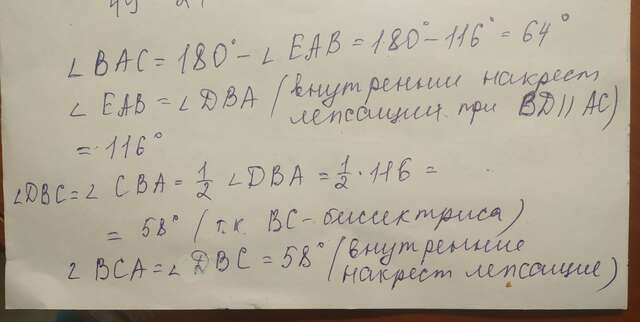 ∠ BAC = 180° - ∠ EAB = 180° - 116° = 64°
∠ EAB = ∠ DBA (внутренние накрест
лепсащии при BD || AC)
= 116°
∠DBC = ∠ CBA = 1/2 ∠DBA = 1/2 · 116 =
= 58° (т.к. BC - биссектриса)
∠ BCA = ∠ DBC = 58° (внутренние
накрест лепсащие)